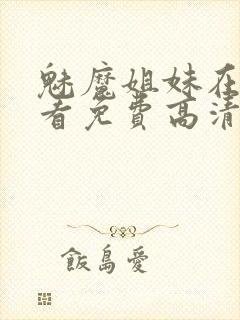 魅魔姐妹在
看免费高清
飯島愛